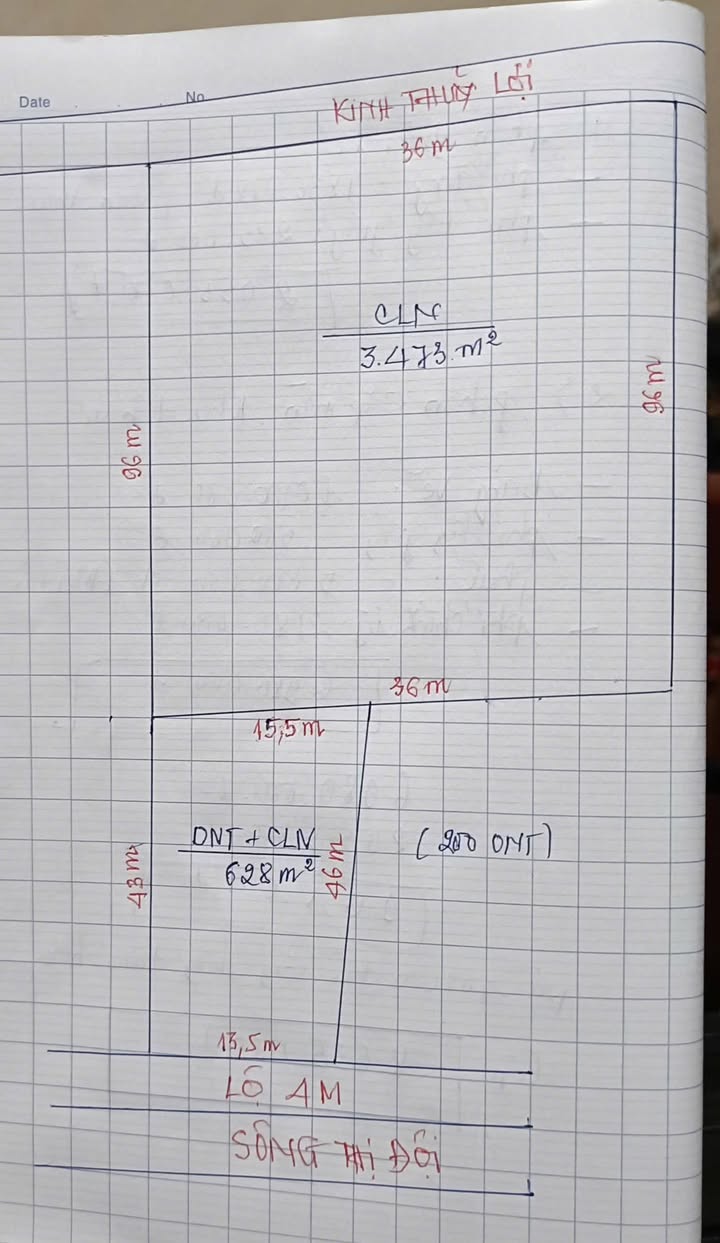 Date No
KINH THUỶ LỢI
36 m
CLN
3.473 m²
96 m
96 m
36 m
15,5 m
ONT + CLN
628 m²
(200 ONT)
43 m
46 m
13,5 m
LỘ 4M
SÔNG THỊ ĐỘI